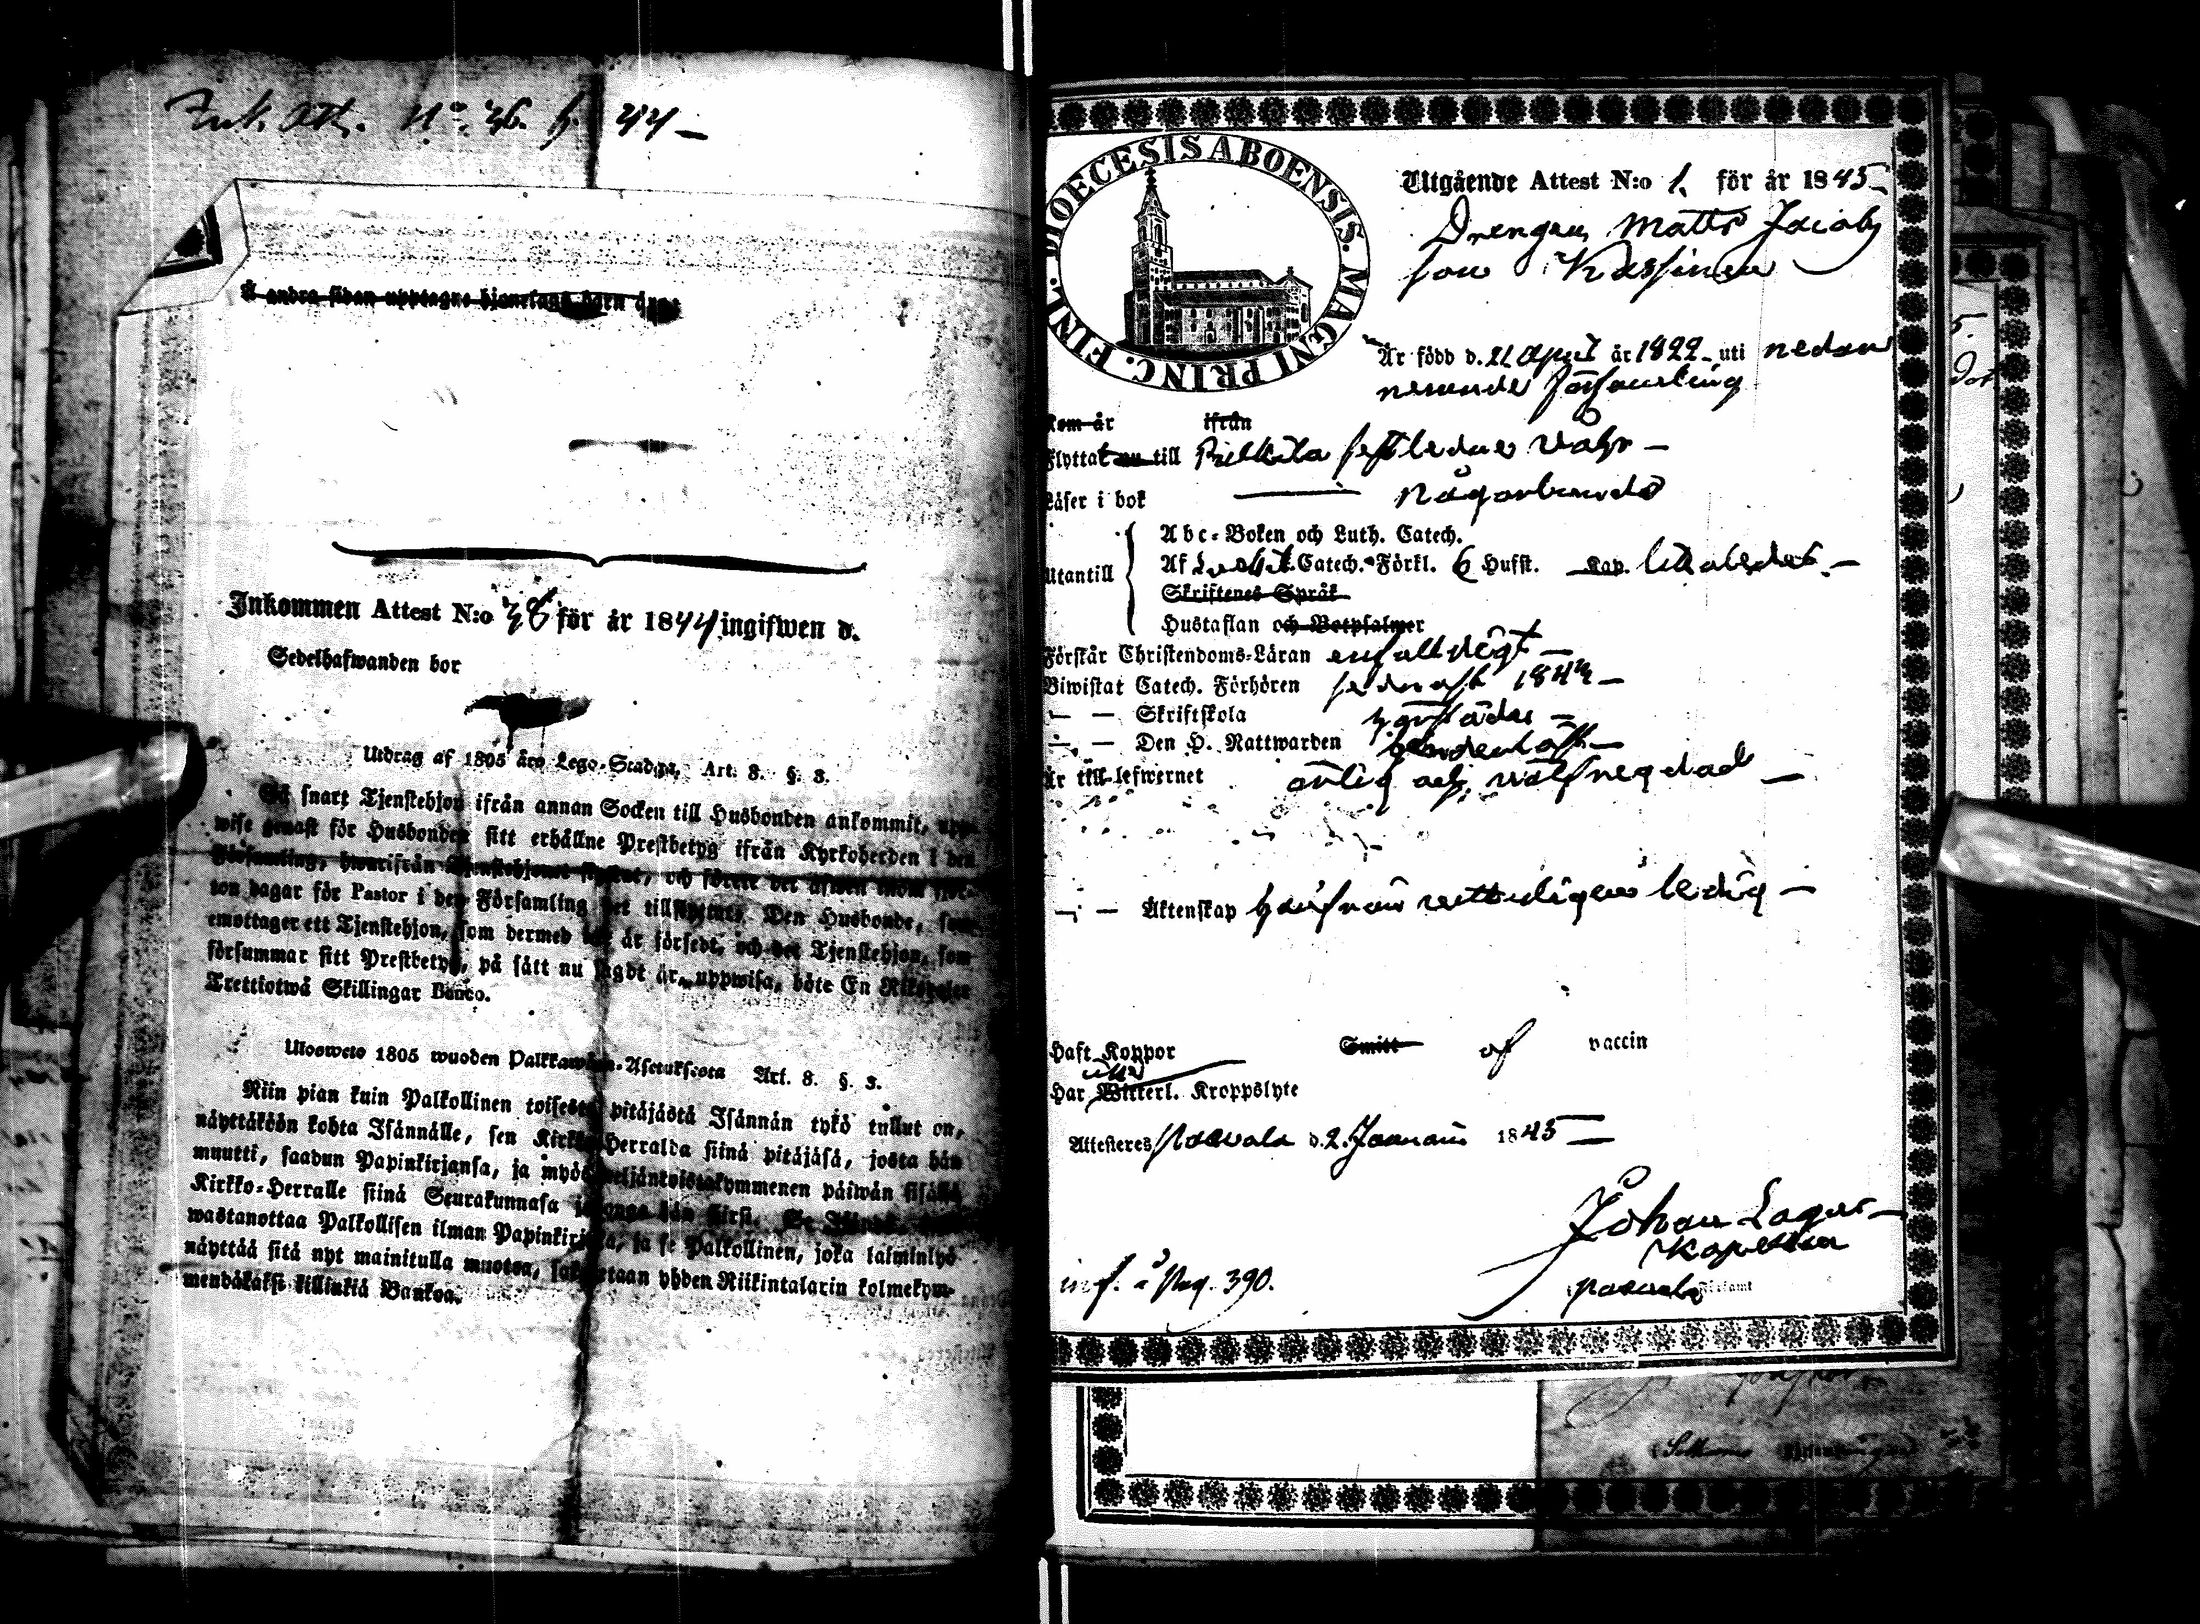 Ink. Att. N:o 46. f. 44
Å andra sidan upptagne hjonelags barn äro:
Inkommen Attest N:o 46 för år 1844 ingifwen d.
Sedelhafwanden bor
Utdrag af 1805 års Lego-Stadga, Art. 8. §. 3.
Så snart Tjenstehjon ifrån annan Socken till Husbonden ankommit, upp-
wise genast för Husbonden sitt erhållne Prestbetyg ifrån Kyrkoherden i den
Församling, hwarifrån Tjenstehjonet flyttat, och förete det äfwen inom fjor-
ton dagar för Pastor i den Församling det tillflyttat. Den Husbonde, som
emottager ett Tjenstehjon, som dermed ej är försedt, och det Tjenstehjon, som
försummar sitt Prestbetyg, på sätt nu sagdt är, uppwisa, böte En Riksdaler
Trettiotwå Skillingar Banco.
Ulosweto 1805 wuoden Palkkawäen-Asetuksesta Art. 8. §. 3.
Niin pian kuin Palkollinen toisesta pitäjästä Isännän tykö tullut on,
näyttäköön kohta Isännälle, sen Kirkko-Herralda siinä pitäjäsä, josta hän
muutti, saadun Papinkirjansa, ja myös neljäntoistakymmenen päiwän sisällä
Kirkko-Herralle siinä Seurakunnasa johonga hän siirsi. Se Isändä, joka
wastanottaa Palkollisen ilman Papinkirjata, ja se Palkollinen, joka laiminlyö
näyttää sitä nyt mainitulla muotoa, sakotetaan yhden Riikintalarin kolmekym-
mendäkaksi killinkiä Bankoa.
FINL. DIOECESIS ABOENSIS. MAGNI PRINC.
Utgående Attest N:o 1. för år 1845
Drengen Matts Jacobs
son Kassinen
Är född d. 21 April år 1822 uti nedan
nemnde församling
Kom år ifrån
Flyttat nu till
Läser i bok någorlunda
Abc-Boken och Luth. Catech.
Utantill Af Catech. Förkl. 6 Hufst. Kap.
Skriftenes Språk
Hustaflan och Botpsalmer
Förstår Christendoms-Läran enfalldigt
Biwistat Catech. Förhören sednast 1844
— — Skriftskola härstädes
— — Den H. Nattwarden
Är till lefwernet ärlig och wälfregdad
— — Äktenskap härifrån ledig
Haft Koppor Smitt af vaccin
Har Witterl. Kroppslyte
Attesteres d. 2 Januarii 1845
Johan Lagus
Kapellan
inf. å Pag. 390.